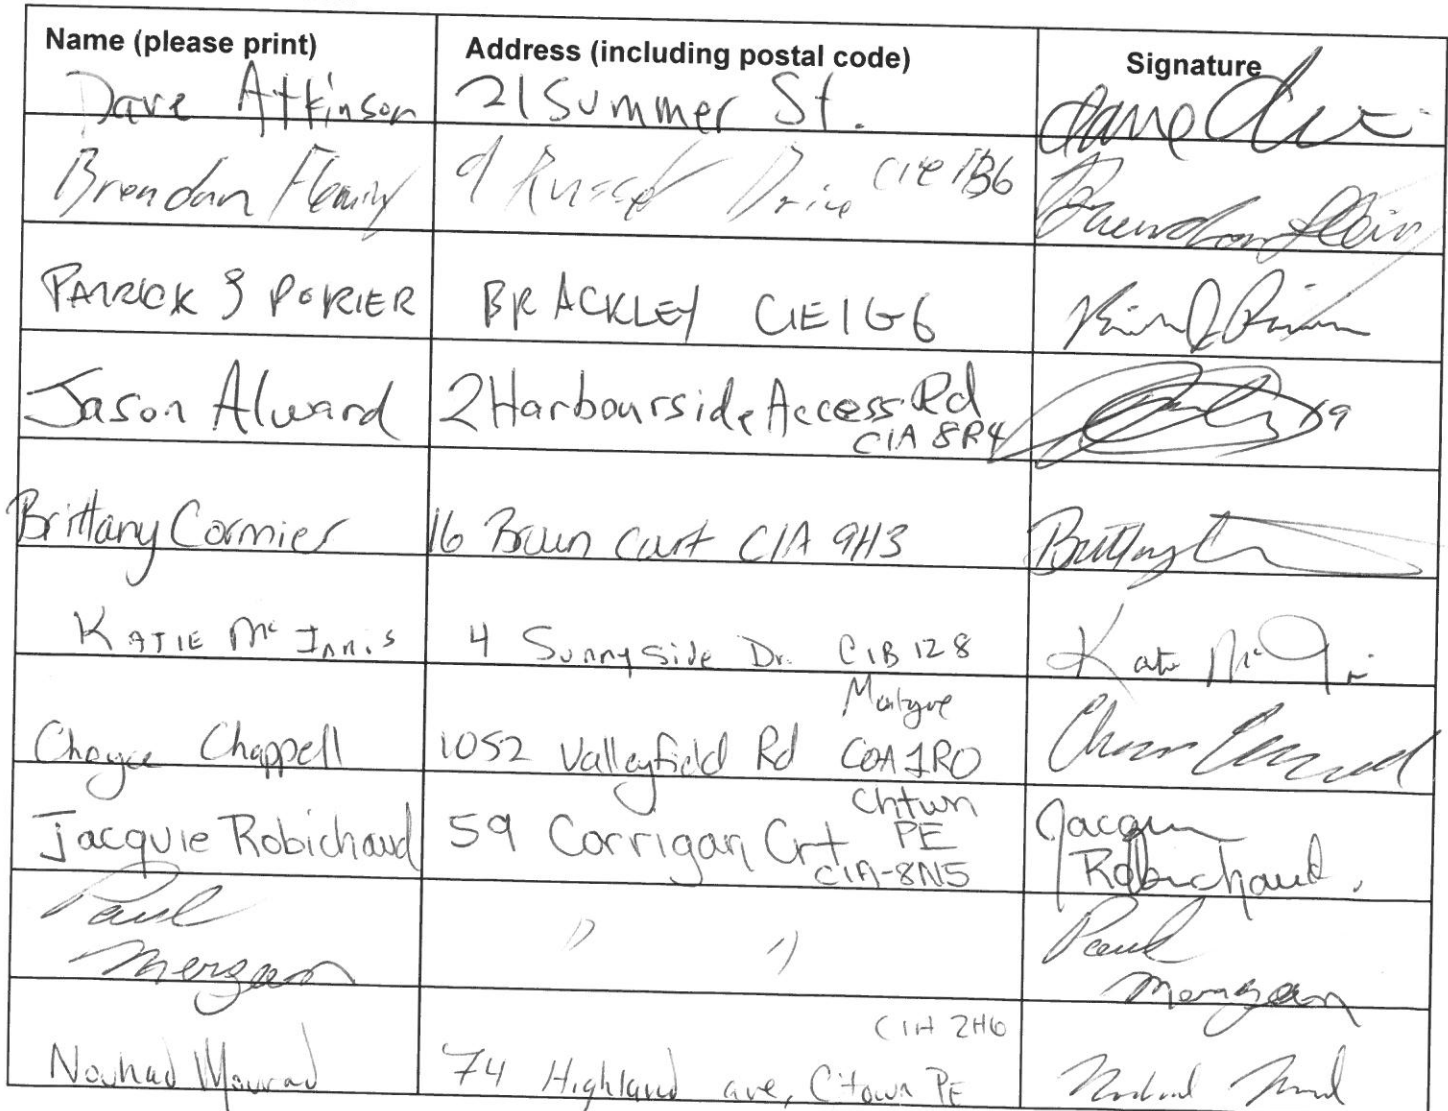 Name (please print) Address (including postal code) Signature
Dave Atkinson 21 Summer St.
Brendan 9 Drive C1E 1B6 Brendan
PATRICK J POIRIER BRACKLEY C1E1G6
Jason Alward 2 Harbourside Access Rd
C1A 8R4
Brittany Cormier 16 Court C1A 9H3 Brittany
KATIE Mc Innis 4 Sunnyside Dr. C1B 1Z8 Katie Mc
Choyce Chappell 1052 Valleyfield Rd
C0A 1R0
Jacquie Robichaud 59 Corrigan Crt Chtwn
PE
C1A-8N5
Jacquie
Robichaud.
Paul
" "
Paul
C1A 2H6
Nouhad Mourad 74 Highland ave, C'town PE